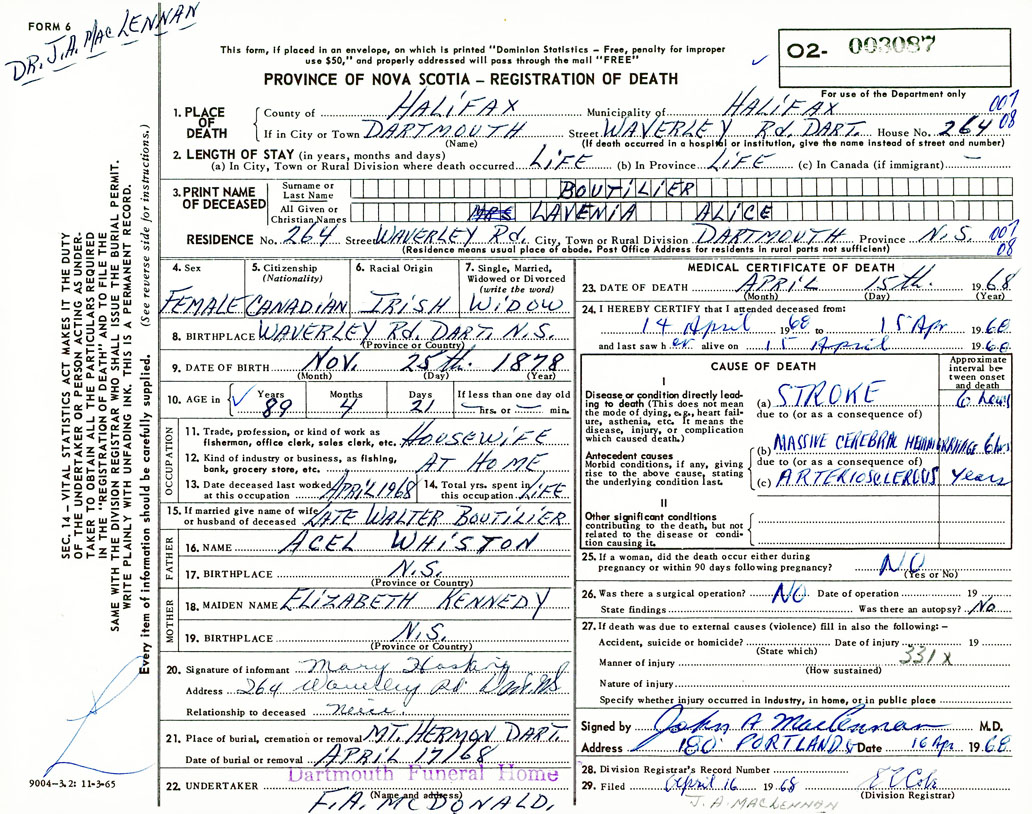 FORM 6
DR. J.A. MACLENNAN
This form, if placed in an envelope, on which is printed "Dominion Statistics – Free, penalty for improper
use $50," and properly addressed will pass through the mail "FREE"
PROVINCE OF NOVA SCOTIA – REGISTRATION OF DEATH
02- 003087
For use of the Department only
007
08
1. PLACE OF DEATH
County of HALIFAX Municipality of HALIFAX
If in City or Town DARTMOUTH Street WAVERLEY Rd. DART. House No. 264
(Name) (If death occurred in a hospital or institution, give the name instead of street and number)
2. LENGTH OF STAY (in years, months and days)
(a) In City, Town or Rural Division where death occurred LIFE (b) In Province LIFE (c) In Canada (if immigrant) —
3. PRINT NAME OF DECEASED
Surname or Last Name BOUTILIER
All Given or Christian Names MRS LAVENIA ALICE
RESIDENCE No. 264 Street WAVERLEY Rd. City, Town or Rural Division DARTMOUTH Province N.S. 007
08
(Residence means usual place of abode. Post Office Address for residents in rural parts not sufficient)
4. Sex
FEMALE
5. Citizenship
(Nationality)
CANADIAN
6. Racial Origin
IRISH
7. Single, Married,
Widowed or Divorced
(write the word)
WIDOW
8. BIRTHPLACE WAVERLEY Rd. DART. N.S.
(Province or Country)
9. DATE OF BIRTH NOV. 25th. 1878
(Month) (Day) (Year)
10. AGE in
Years
89
Months
4
Days
21
If less than one day old
— hrs. or — min.
OCCUPATION
11. Trade, profession or kind of work as
fisherman, office clerk, sales clerk, etc. HOUSEWIFE
12. Kind of industry or business, as fishing,
bank, grocery store, etc. AT HOME
13. Date deceased last worked
at this occupation APRIL 1968
14. Total yrs. spent in
this occupation LIFE
15. If married give name of wife
or husband of deceased LATE WALTER BOUTILIER
FATHER
16. NAME ACEL WHISTON
17. BIRTHPLACE N.S.
(Province or Country)
MOTHER
18. MAIDEN NAME ELIZABETH KENNEDY
19. BIRTHPLACE N.S.
(Province or Country)
20. Signature of informant Mary
Address 264 Waverley Rd Dart. NS
Relationship to deceased neice
21. Place of burial, cremation or removal MT. HERMON DART.
Date of burial or removal APRIL 17/68
Dartmouth Funeral Home
22. UNDERTAKER
(Name and address)
F.A. McDONALD.
MEDICAL CERTIFICATE OF DEATH
23. DATE OF DEATH APRIL 15th. 1968
(Month) (Day) (Year)
24. I HEREBY CERTIFY that I attended deceased from:
14 April 1968 to 15 Apr 1968
and last saw her alive on 15 April 1968
CAUSE OF DEATH
Approximate
interval be-
tween onset
and death
I
Disease or condition directly lead-
ing to death (This does not mean
the mode of dying, e.g., heart fail-
ure, asthenia, etc. It means the
disease, injury, or complication
which caused death.)
(a) STROKE 6 hours
due to (or as a consequence of
Antecedent causes
Morbid conditions, if any, giving
rise to the above cause, stating
the underlying condition last.
(b) MASSIVE CEREBRAL HEMORRHAGE 6 hrs
due to (or as a consequence of)
(c) ARTERIOSCLEROSIS years
II
Other significant conditions
contributing to the death, but not
related to the disease or condi-
tion causing it.
25. If a woman, did the death occur either during
pregnancy or within 90 days following pregnancy? NO
(Yes or No)
26. Was there a surgical operation? NO Date of operation 19
State findings Was there an autopsy? No
27. If death was due to external causes (violence) fill in also the following: –
Accident, suicide or homicide? Date of injury 19
(State which)
331X
Manner of injury
(How sustained)
Nature of injury
Specify whether injury occurred in Industry, in home, or in public place
Signed by John A MacLennan M.D.
Address 180 PORTLAND St Date 16 Apr. 1968
28. Division Registrar's Record Number
29. Filed April 16 1968
(Division Registrar)
J.A. MACLENNAN
SEC. 14 – VITAL STATISTICS ACT MAKES IT THE DUTY
OF THE UNDERTAKER OR PERSON ACTING AS UNDER-
TAKER TO OBTAIN ALL THE PARTICULARS REQUIRED
IN THE "REGISTRATION OF DEATH" AND TO FILE THE
SAME WITH THE DIVISION REGISTRAR WHO SHALL ISSUE THE BURIAL PERMIT.
WRITE PLAINLY WITH UNFADING INK. THIS IS A PERMANENT RECORD.
Every item of information should be carefully supplied. (See reverse side for instructions.)
9004–3.2: 11-3-65